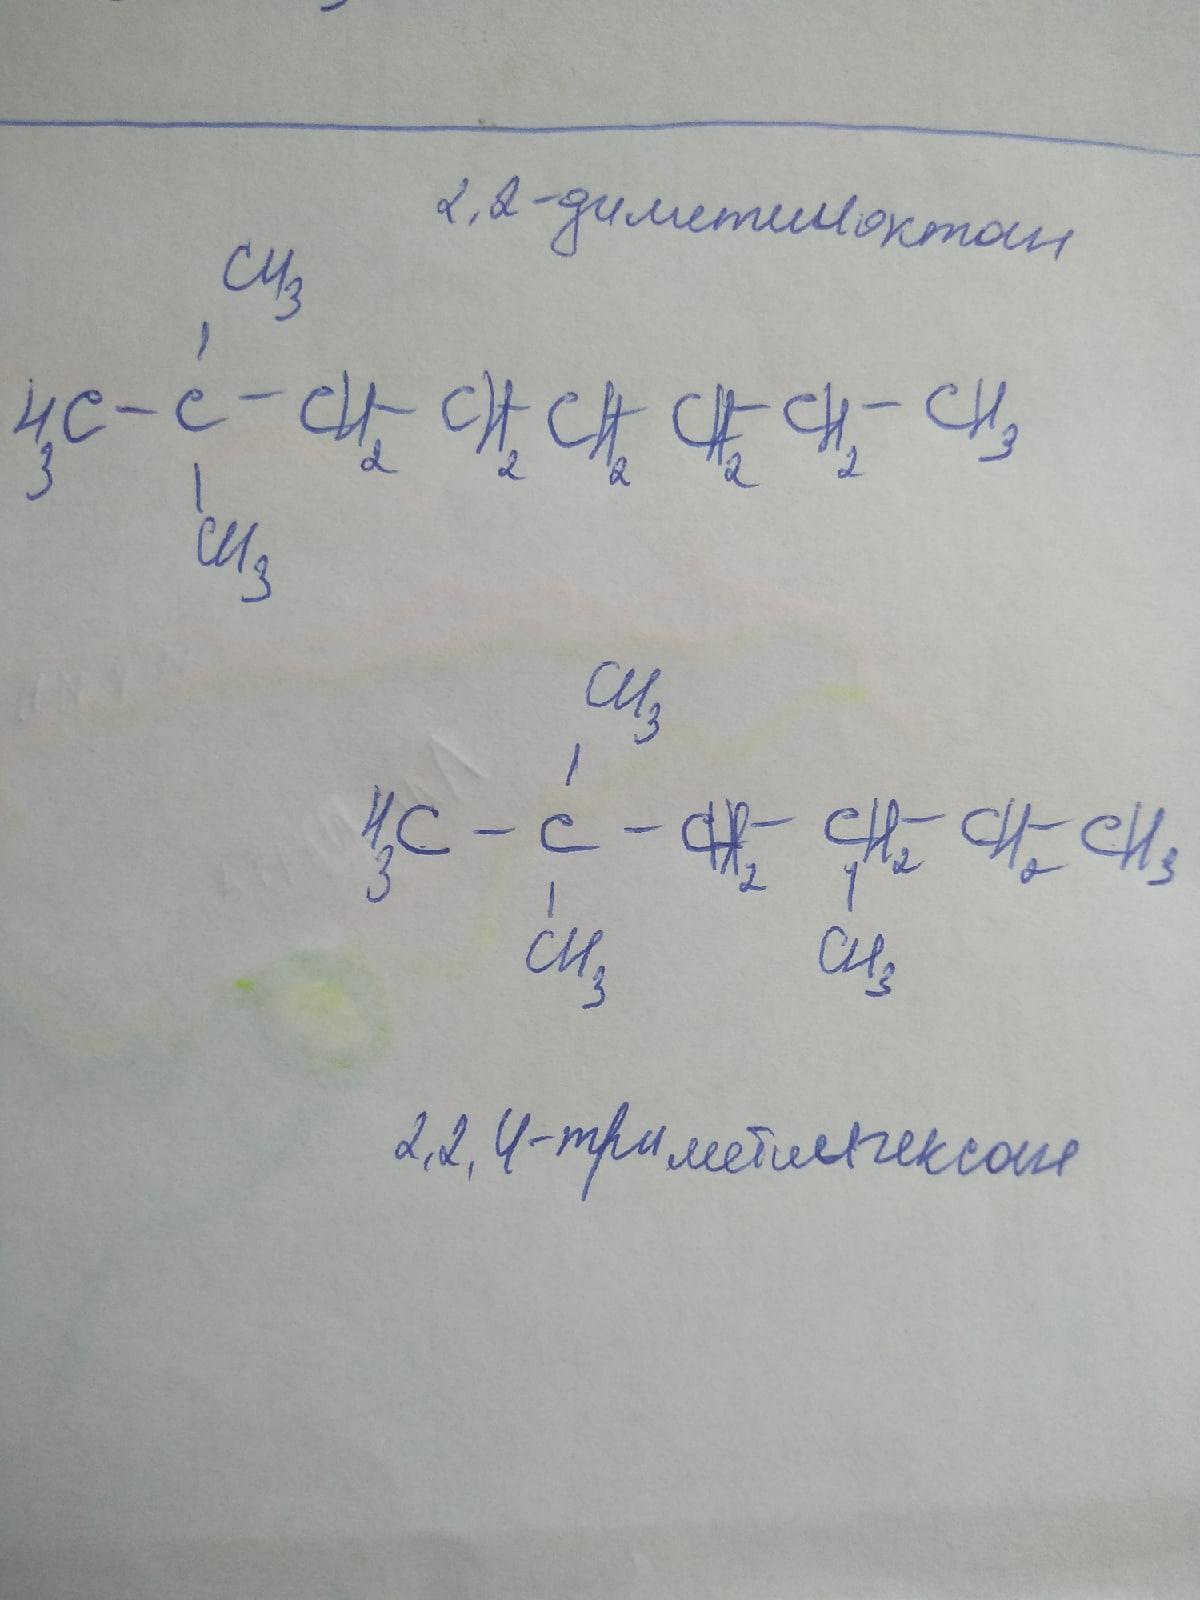 2,2-диметилоктан
CH3
H3C - C - CH2 - CH2 - CH2 - CH2 - CH2 - CH3
CH3
CH3
H3C - C - CH2 - CH2 - CH2 - CH3
CH3 CH3
2,2,4-триметилгексан